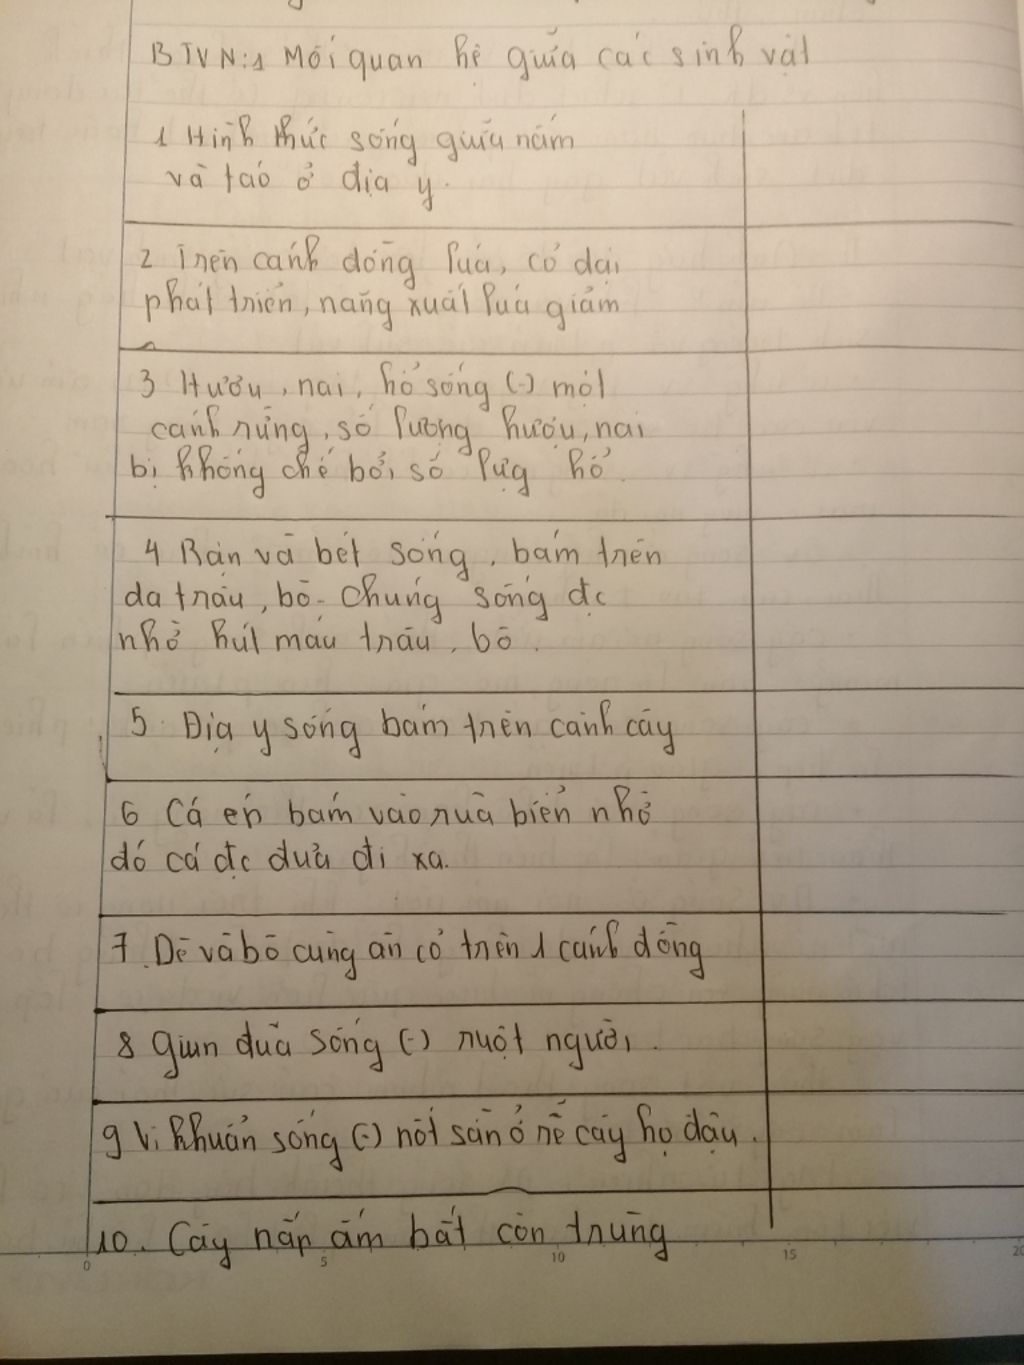 BTVN:1 Mối quan hệ giữa các sinh vật
1 Hình thức sống giữa nấm
và tảo ở địa y.
2 Trên cánh đồng lúa, cỏ dại
phát triển, năng xuất lúa giảm
3 Hươu, nai, hổ sống (-) một
cánh rừng, số lượng hươu, nai
bị khống chế bởi số lựg hổ.
4 Rận và bét sống, bám trên
da trâu, bò. Chúng sống đc
nhờ hút máu trâu, bò.
5 Địa y sống bám trên cành cây
6 Cá ép bám vào rùa biển nhờ
đó cá đc đưa đi xa.
7. Dê và bò cùng ăn cỏ trên 1 cánh đồng
8 Giun đũa sống (-) ruột người.
9 Vi khuẩn sống (-) nốt sần ở rễ cây họ đậu.
10. Cây nắp ấm bắt côn trùng
0 5 10 15 20